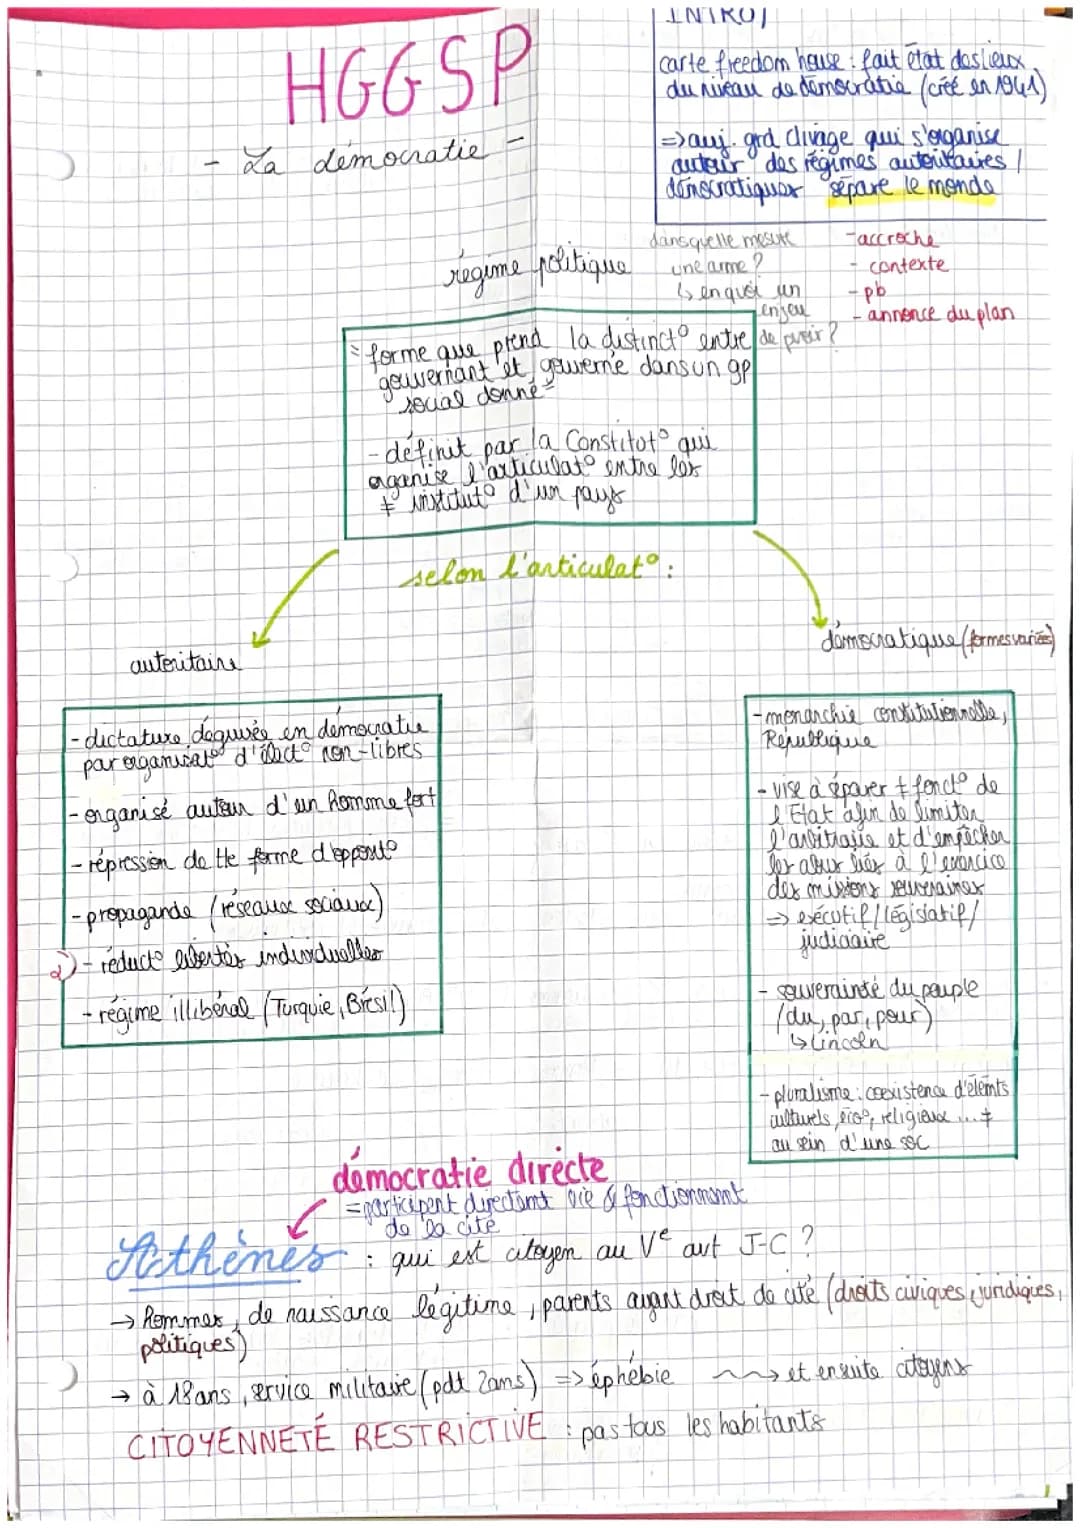 HGGSP
- La démocratie -
INTRO/
carte freedom house : fait état des lieux
du niveau de démocratie (créé en 1941)
=> auj. grd clivage qui s'organise
autour des régimes autoritaires /
démocratiques sépare le monde
dans quelle mesure
une arme ?
↳ en quoi un
enjeu
de pvoir ?
- accroche
- contexte
- pb
- annonce du plan
régime politique
= forme que prend la distinct° entre
gouvernant et gouverné dans un gp
social donné =
- définit par la Constitut° qui
organise l'articulat° entre les
≠ institut° d'un pays
selon l'articulat° :
autoritaire
- dictature déguisée en démocratie
par organisat° d'élect° non-libres
- organisé autour d'un homme fort
- répression de tte forme d'opposit°
- propagande (réseaux sociaux)
- réduct° libertés individuelles
- régime illibéral (Turquie, Brésil)
démocratique (formes variées)
- monarchie constitutionnelle,
République
- vise à séparer ≠ fonct° de
l'Etat afin de limiter
l'arbitraire et d'empêcher
les abus liés à l'exercice
des missions souveraines
=> exécutif/législatif/
judiciaire
- souveraineté du peuple
(du, par, pour)
↳ Lincoln
- pluralisme : coexistence d'élémts
culturels, religieux ... ≠
au sein d'une soc
démocratie directe
= participent directemt vie & fonctionnemt
de la cité
Athènes : qui est citoyen au Ve avt J-C ?
→ Hommes, de naissance légitime, parents ayant droit de cité (droits civiques, juridiques,
politiques)
→ à 18 ans, service militaire (pdt 2ans) => éphébie ~~> et ensuite citoyens
CITOYENNETÉ RESTRICTIVE : pas tous les habitants